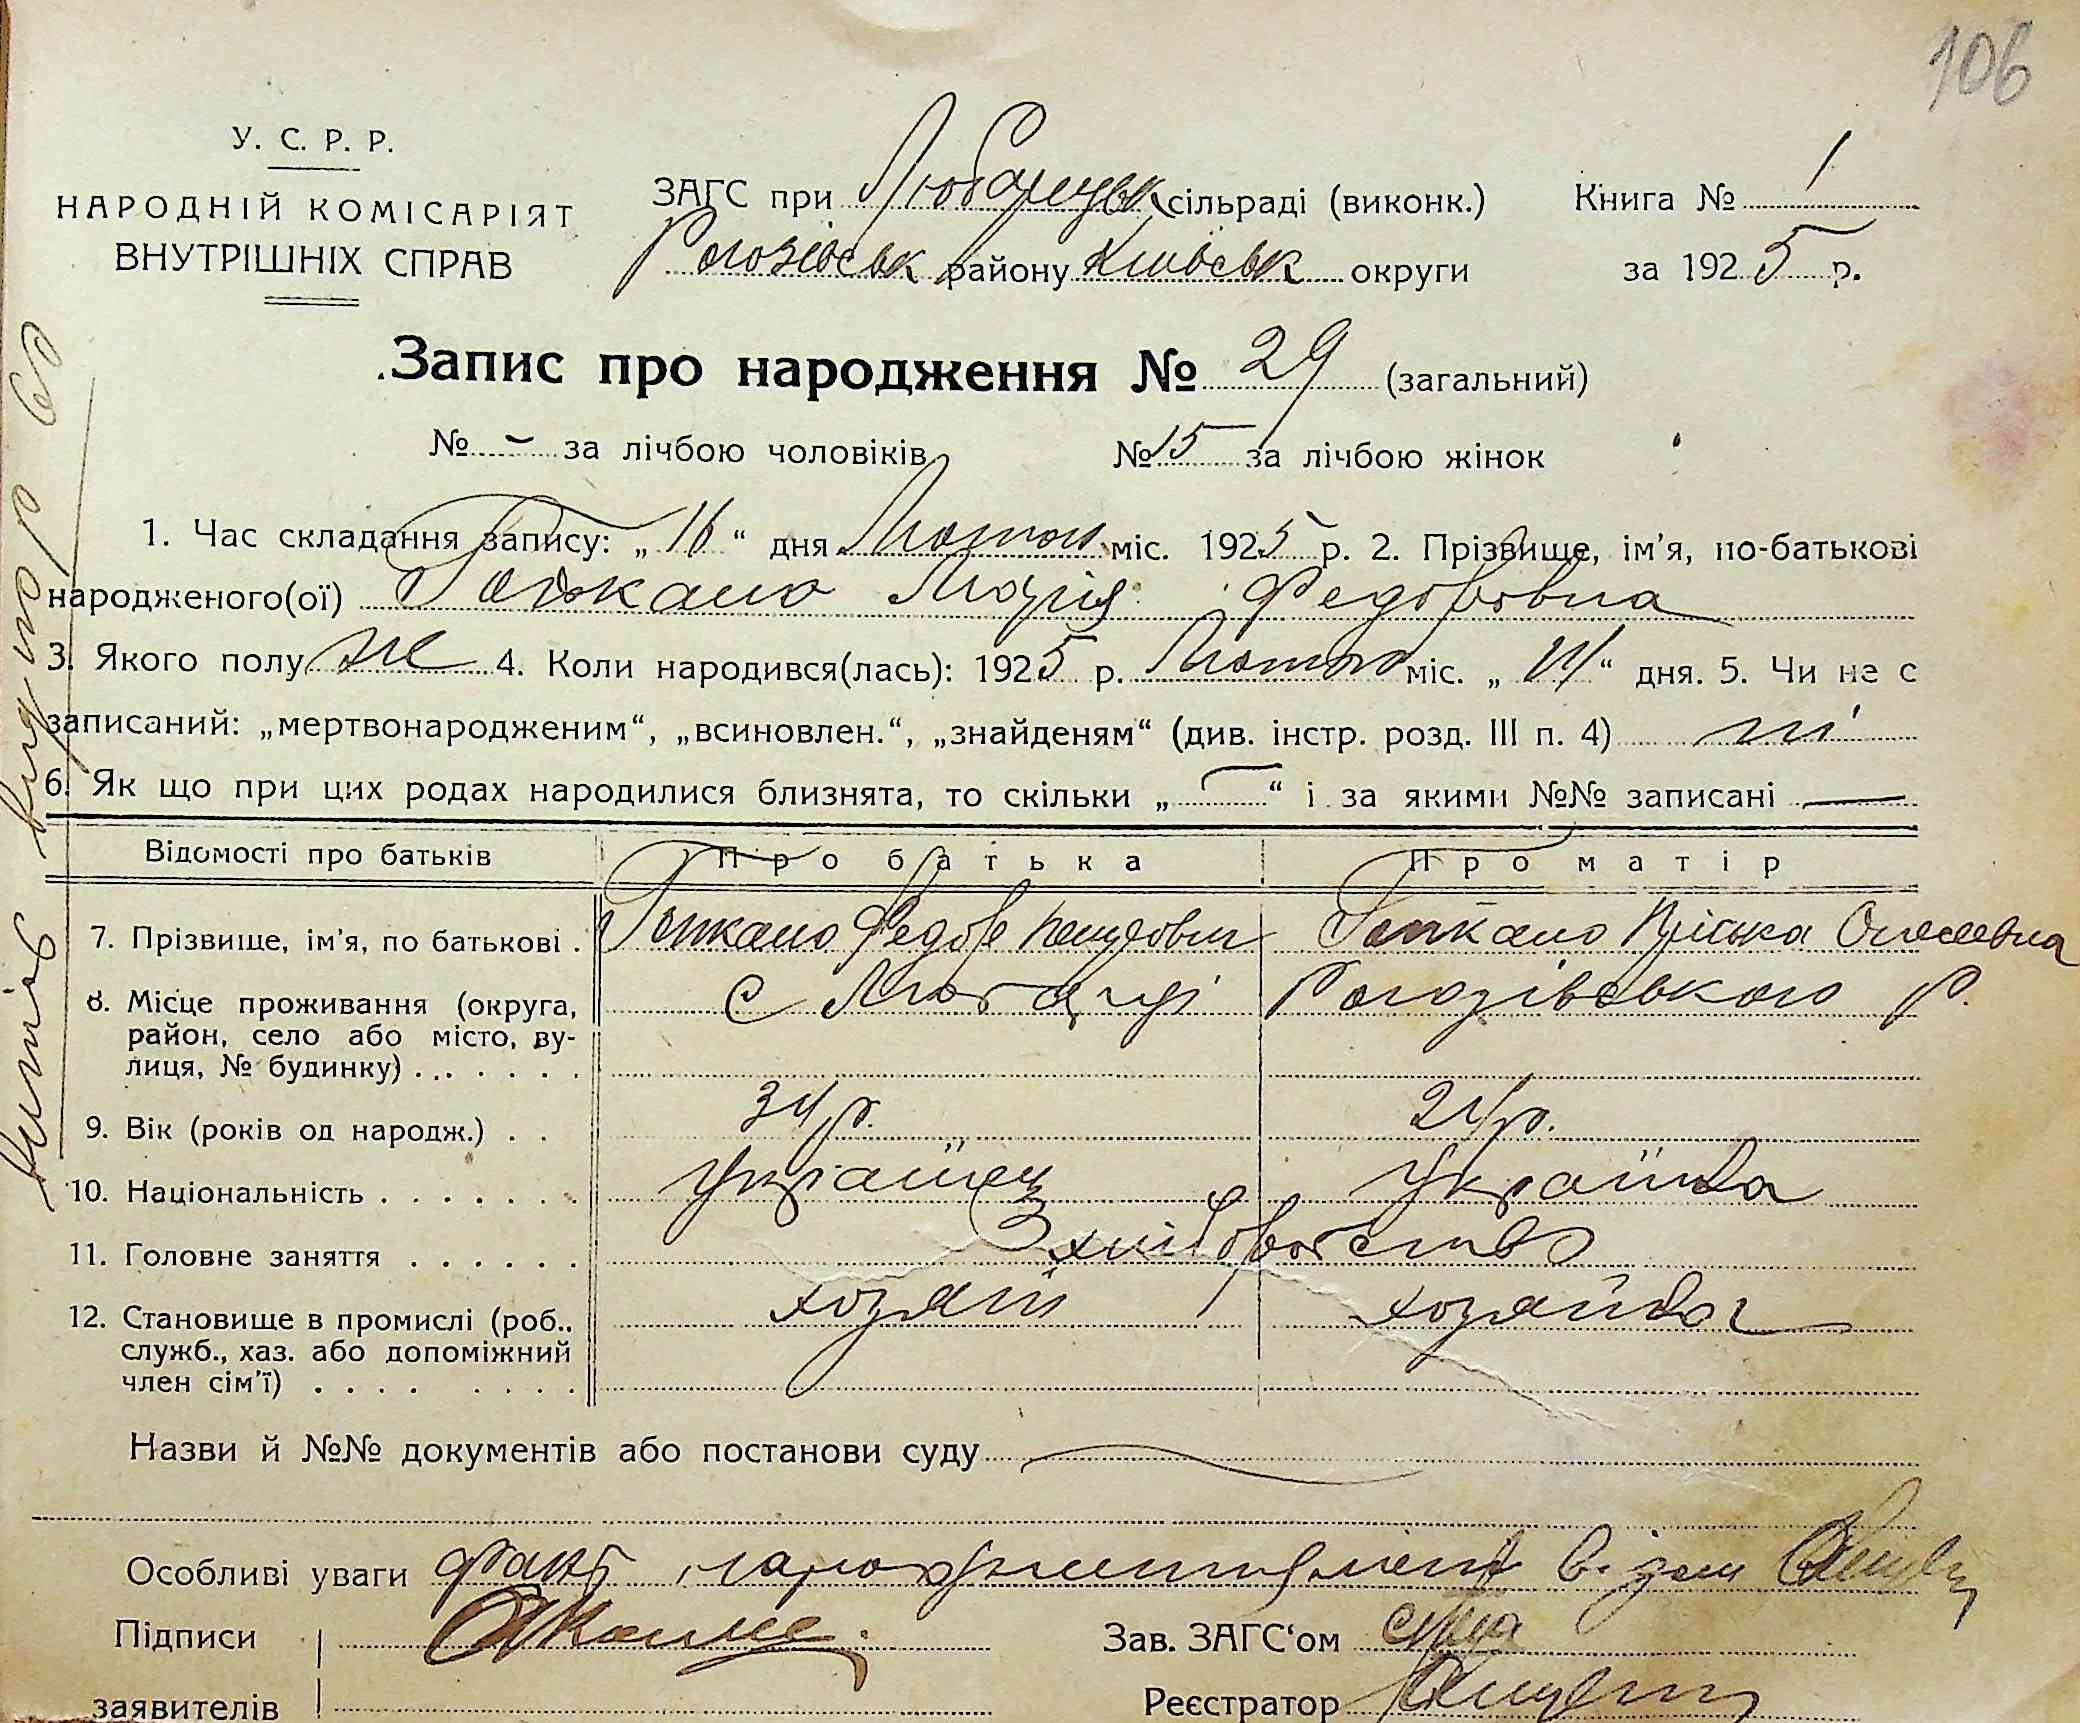 106
У. С. Р. Р.
НАРОДНІЙ КОМІСАРІЯТ
ВНУТРІШНІХ СПРАВ
ЗАГС при Любарецьк сільраді (виконк.)
Рогозівськ району Київськ округи
Книга № 1
за 1925 р.
Запис про народження № 29 (загальний)
№ - за лічбою чоловіків № 15 за лічбою жінок
1. Час складання запису: „16“ дня Лютого міс. 1925 р. 2. Прізвище, ім'я, по-батькові
народженого(ої) Марія Федоровна
3. Якого полу ж 4. Коли народився(лась): 1925 р. Лютого міс. „ “ дня. 5. Чи не є
записаний: „мертвонародженим“, „всиновлен.“, „знайденям“ (див. інстр. розд. III п. 4) ні
6. Як що при цих родах народилися близнята, то скільки „—“ і за якими №№ записані —
Відомості про батьків Про батька Про матір
7. Прізвище, ім'я, по батькові . Федор Пріська
8. Місце проживання (округа, район, село або місто, вулиця, № будинку) . . . . . . . с Любарці Рогозівського р.
9. Вік (років од народж.) . . 34р. 24р.
10. Національність . . . . . . . Українец Українка
11. Головне заняття . . . . . . Хліборобство
12. Становище в промислі (роб., служб., хаз. або допоміжний член сім'ї) . . . . . . . . хозяїн хозяйка
Назви й №№ документів або постанови суду
Особливі уваги факт
Підписи
заявителів
Зав. ЗАГС‘ом
Реєстратор